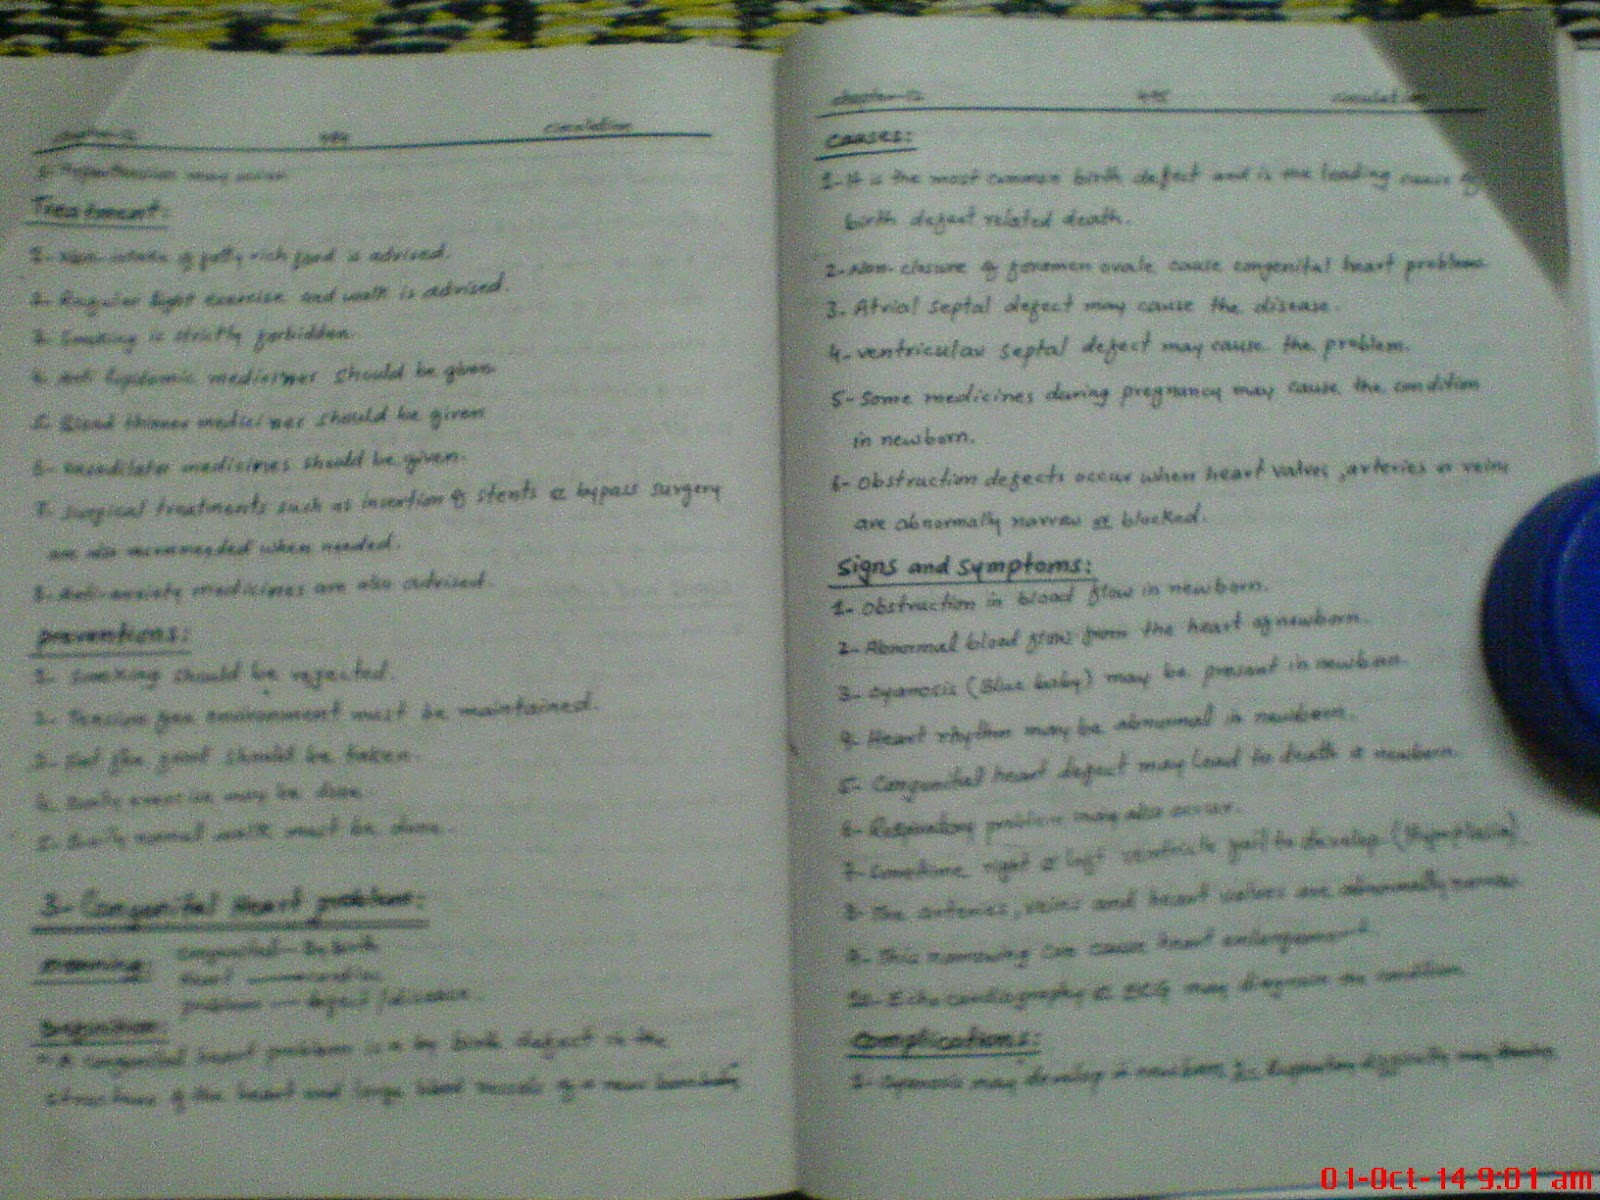 chapter-12 circulation
5- Hypertension may occur
Treatment:
1- Non-intake of fatty rich food is advised.
2- Rugular light exercise and walk is advised.
3- Smoking is strictly forbidden.
4- Anti lipidemic medicines should be given
5- Blood thinner medicines should be given
6- vasodilator medicines should be given.
7- Surgical treatments such as insertion of stents & bypass surgery
are also recommended when needed.
8- Anti-anxiety medicines are also advised.
preventions:
1- Smoking should be rejected.
2- Tension free environment must be maintained.
3- food should be taken.
4- exercise may be done
5- Daily normal walk must be done.
3- Congenital Heart problems:
meaning: congenital — By birth
Heart — cardiac
problem — defect / disease.
Definition:
"A congenital heart problem is a by birth defect in the
structure of the heart and large blood vessels of a new born baby"
chapter-12 circulation
causes:
1- It is the most common birth defect and is the leading cause of
birth defect related death.
2- Non-closure of foramen ovale cause congenital heart problems
3- Atrial septal defect may cause the disease.
4- ventricular septal defect may cause the problem.
5- Some medicines during pregnancy may cause the condition
in newborn.
6- Obstruction defects occur when heart valves, arteries or veins
are abnormally narrow or blocked.
Signs and symptoms:
1- Obstruction in blood flow in newborn.
2- Abnormal blood flow from the heart of newborn.
3- cyanosis (Blue baby) may be present in newborn.
4- Heart rhythm may be abnormal in newborn.
5- Congenital heart defect may lead to death newborn.
6- Respiratory problem may also occur.
7- Sometime right & left ventricle fail to develop (Hypoplasia).
8- The arteries, veins and heart valves are abnormally narrow
9- This narrowing can cause heart enlargement.
10- Echo cardiography & ECG may diagnose the condition.
Complications:
1- Cyanosis may develop in newborn. 2- Respiratory difficulty may
01-Oct-14 9:01 am